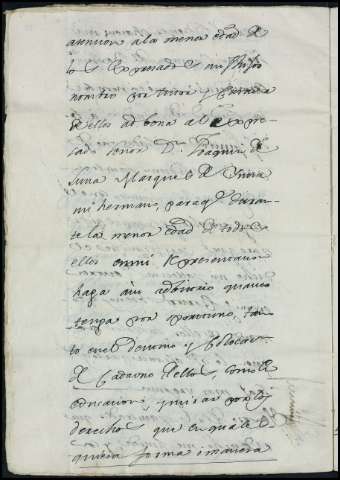 atencion a la menor edad de
los expresados mis hijos
nombro por tutor y curador
de ellos ad bona al expre-
sado señor Dn Joaquin de
Luna Marques de
mi hermano, para qe duran-
te la menor edad de todos
ellos omni representacion
haga a su adbitrio quanto
tenga por oportuno, tan-
to en el destino y colocacion
de cada uno de ellos, como de
educacion, y mirar por sus
derechos que en qual
quiera forma i manera